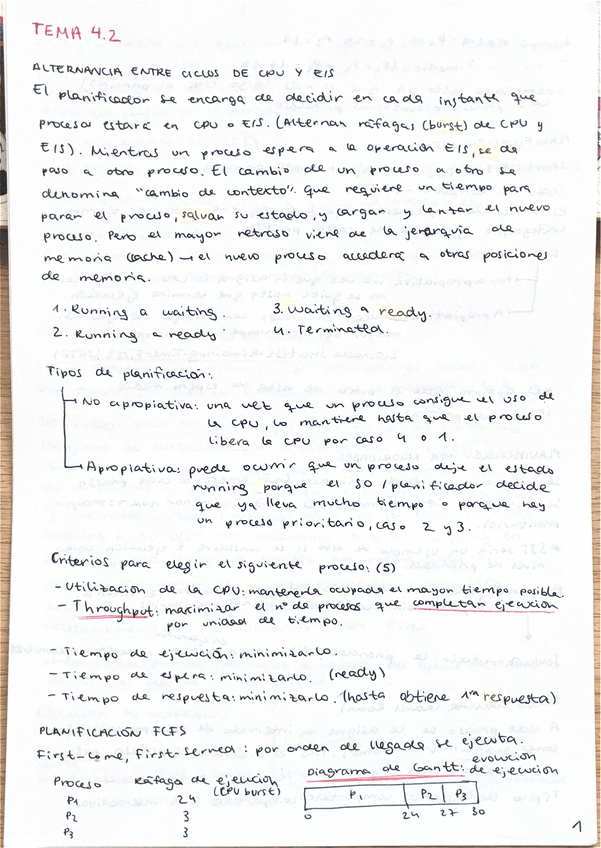 TEMA 4.2
ALTERNANCIA ENTRE CICLOS DE CPU Y E/S
El planificador se encarga de decidir en cada instante que
proceso estará en CPU o E/S. (Alternan ráfagas (burst) de CPU y
E/S). Mientras un proceso espera a la operación E/S, se da
paso a otro proceso. El cambio de un proceso a otro se
denomina "cambio de contexto". que requiere un tiempo para
parar el proceso, salvar su estado, y cargar y lanzar el nuevo
proceso. Pero el mayor retraso viene de la jerarquía de
memoria (cache) → el nuevo proceso accederá a otras posiciones
de memoria.
1. Running a waiting. 3. Waiting a ready.
2. Running a ready. 4. Terminated.
Tipos de planificación:
No apropiativa: una vez que un proceso consigue el uso de
la CPU, lo mantiene hasta que el proceso
libera la CPU por caso 4 o 1.
Apropiativa: puede ocurrir que un proceso deje el estado
running porque el SO / planificador decide
que ya lleva mucho tiempo o porque hay
un proceso prioritario, caso 2 y 3.
Criterios para elegir el siguiente proceso: (5)
- Utilización de la CPU: mantenerla ocupada el mayor tiempo posible.
- Throughput: maximizar el nº de procesos que completan ejecución
por unidad de tiempo.
- Tiempo de ejecución: minimizarlo.
- Tiempo de espera: minimizarlo. (ready)
- Tiempo de respuesta: minimizarlo. (hasta obtiene 1ra respuesta)
PLANIFICACIÓN FCFS
First-come, First-Served: por orden de llegada se ejecuta.
Diagrama de Gantt: evolución de ejecución
Proceso Ráfaga de ejecución (CPU burst)
P1 24
P2 3
P3 3
P1 P2 P3
0 24 27 30
1